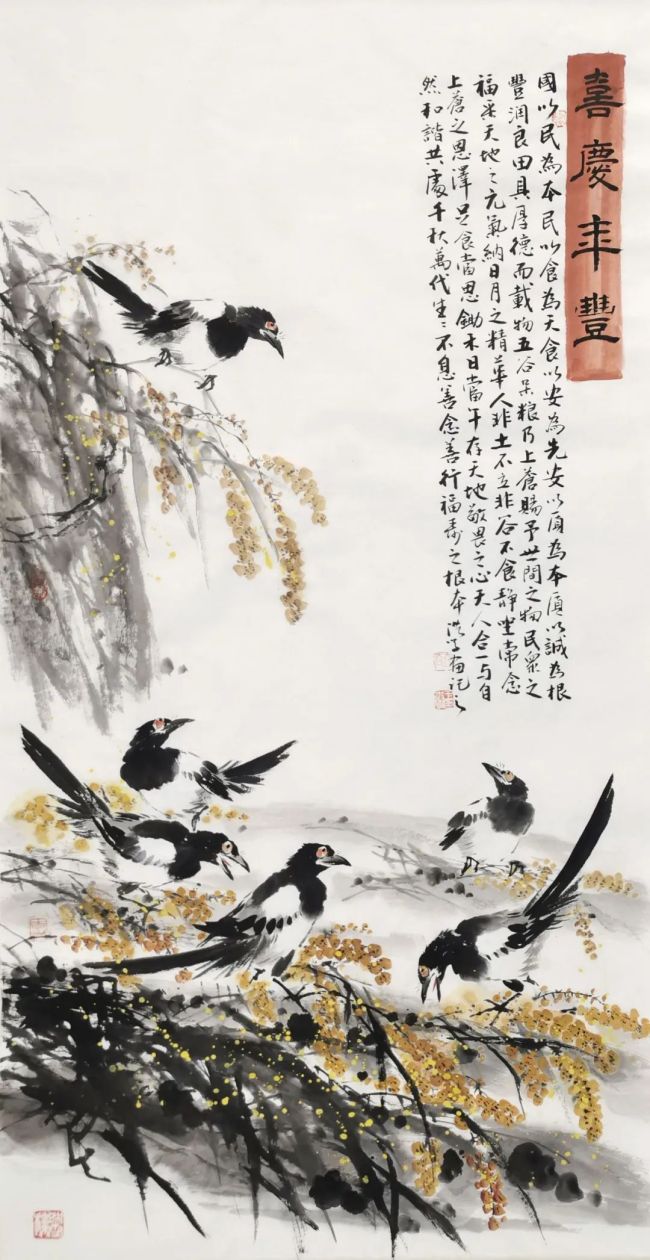 喜慶年豐
國以民為本民以食為天食以安為先安以質為本質以誠為根
豐润良田具厚德而載物五谷杂粮乃上蒼賜予世間之物民眾之
福采天地之元氣納日月之精華人非土不立非谷不食静坐常念
上蒼之恩澤足食當思鋤禾日當午存天地敬畏之心天人合一与自
然和諧共處千秋萬代生〻不息善念善行福寿之根本画记之